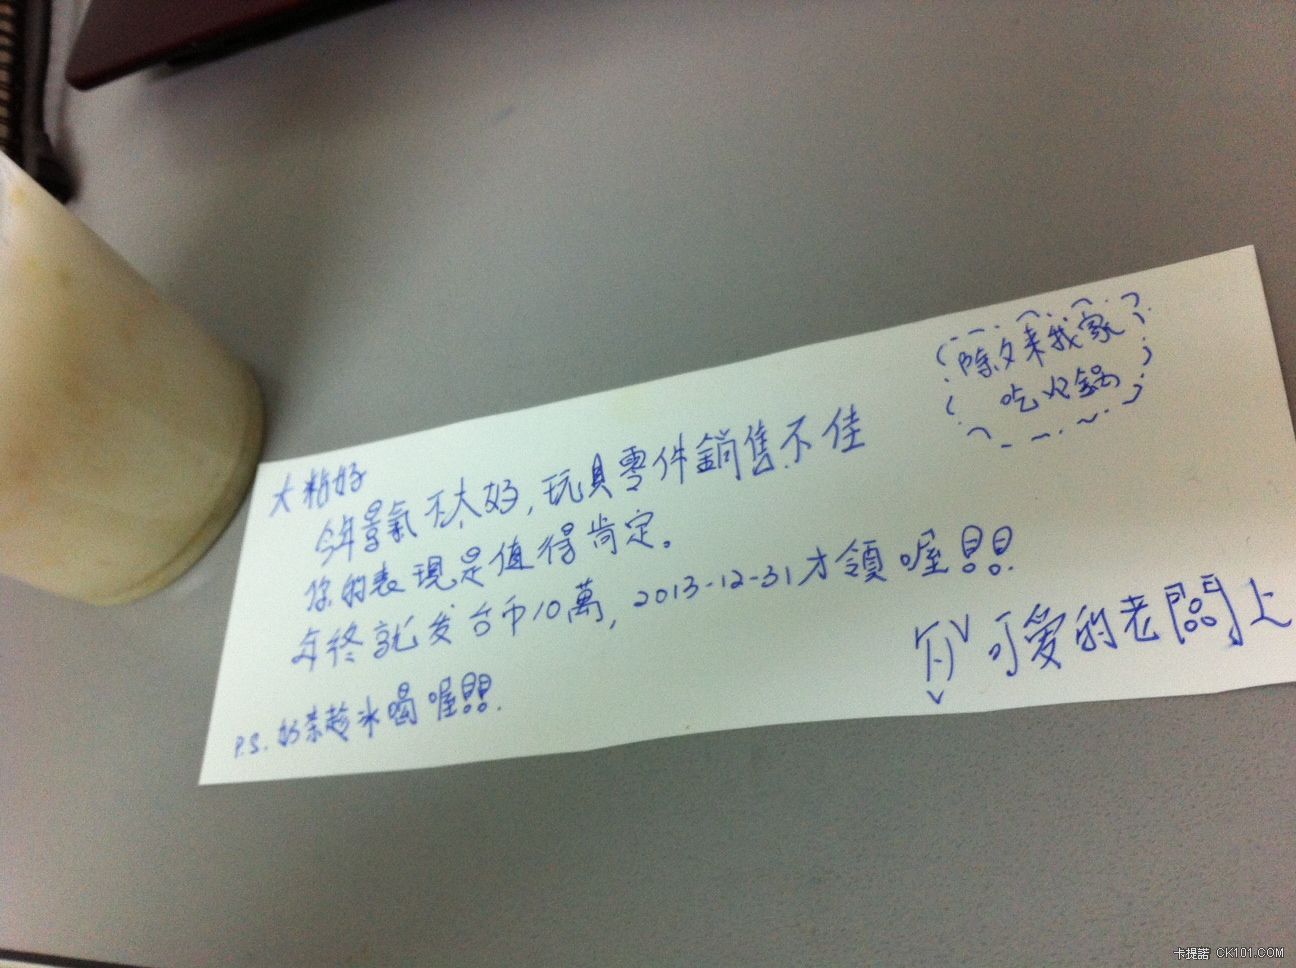 除夕來我家
吃火鍋
大粘好
今年景氣不太好,玩具零件銷售不佳
你的表現是值得肯定。
年終就发台币10萬,2013-12-31才領喔!!!
可愛的老闆上
P.S.奶茶趁冰喝喔!!!
卡提諾 CK101.COM